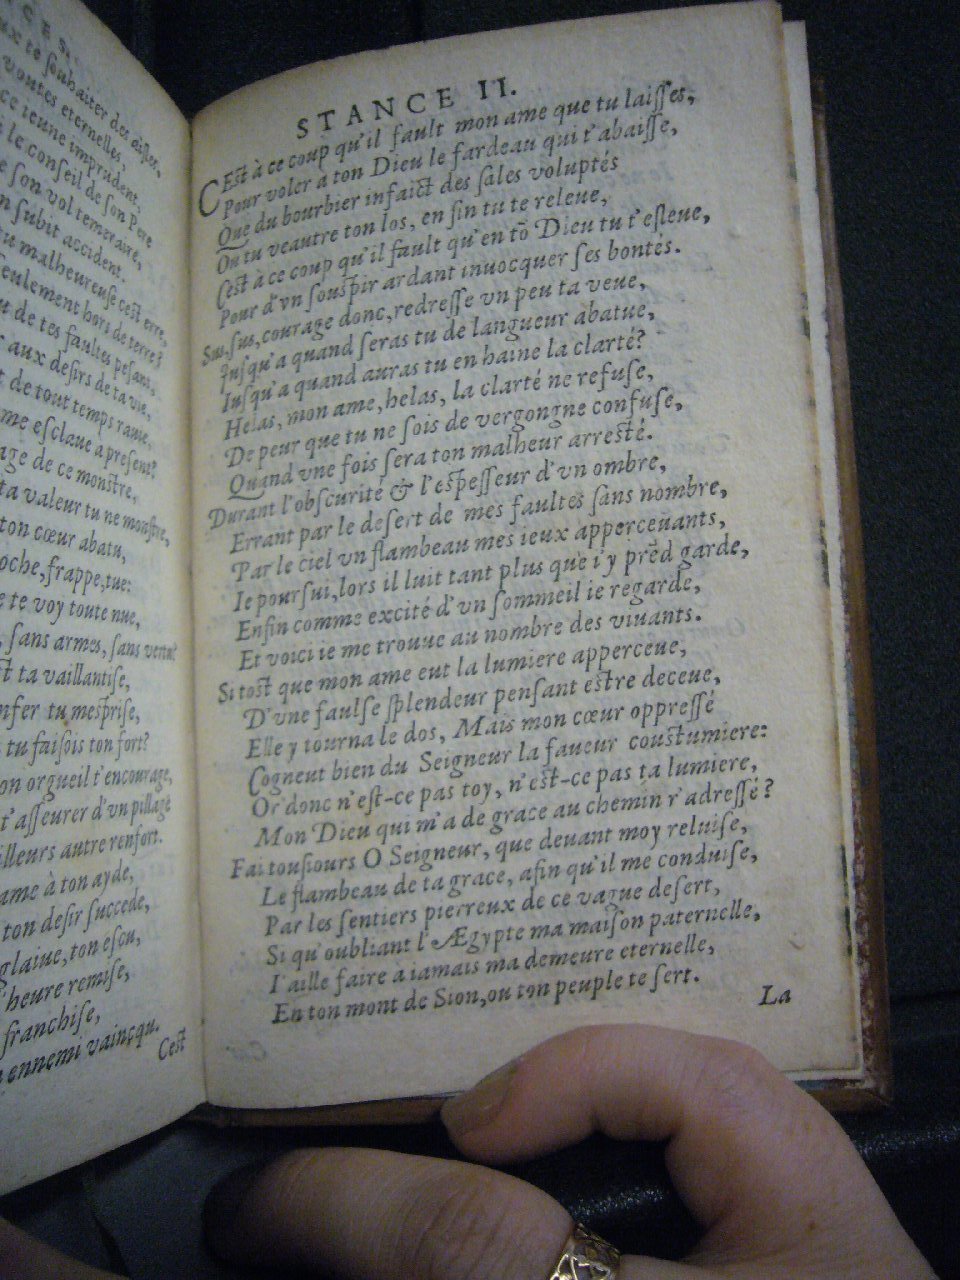 CE S.
ux te souhaiter des aisles,
voutes eternelles,
ce ieune imprudent,
le conseil de son Pere
e son vol temeraire,
n subit accident.
tu malheureuse cest erre,
seulement hors de terre?
u de tes faultes pesant,
r aux desirs de ta vie,
t de tout temps rauie,
me esclaue a present?
age de ce monstre,
ta valeur tu ne monstre,
ton cœur abatu,
oche, frappe, tue:
e te voy toute nue,
, sans armes, sans vertu?
st ta vaillantise,
nfer tu mesprise,
tu faisois ton fort?
on orgueil t'encourage,
t'asseurer d'un pillage
illeurs autre renfort.
ame à ton ayde,
ton desir succede,
glaiue, ton escu,
l'heure remise,
franchise,
ennemi vaincqu.
Cest
STANCE II.
CEst à ce coup qu'il fault mon ame que tu laisses,
Pour voler a ton Dieu le fardeau qui t'abaisse,
Que du bourbier infaict des sales voluptés
Ou tu veautre ton los, en fin tu te releue,
Cest à ce coup qu'il fault qu'en tō Dieu tu t'esleue,
Pour d'vn souspir ardant inuocquer ses bontés.
Sus, sus, courage donc, redresse vn peu ta veue,
Iusqu'a quand seras tu de langueur abatue,
Iusqu'a quand auras tu en haine la clarté?
Helas, mon ame, helas, la clarté ne refuse,
De peur que tu ne sois de vergongne confuse,
Quand vne fois sera ton malheur arresté.
Durant l'obscurité & l'espesseur d'vn ombre,
Errant par le desert de mes faultes sans nombre,
Par le ciel vn flambeau mes ieux apperceuants,
Ie poursui, lors il luit tant plus que i'y prēd garde,
Enfin comme excité d'vn sommeil ie regarde,
Et voici ie me trouue au nombre des viuants.
Si tost que mon ame eut la lumiere apperceue,
D'vne faulse splendeur pensant estre deceue,
Elle y tourna le dos, Mais mon cœur oppressé
Cogneut bien du Seigneur la faueur coustumiere:
Or donc n'est-ce pas toy, n'est-ce pas ta lumiere,
Mon Dieu qui m'a de grace au chemin r'adressé?
Fai tousiours O Seigneur, que deuant moy reluise,
Le flambeau de ta grace, afin qu'il me conduise,
Par les sentiers pierreux de ce vague desert,
Si qu'oubliant l'Ægypte ma maison paternelle,
I'aille faire a iamais ma demeure eternelle,
En ton mont de Sion, ou ton peuple te sert.
La